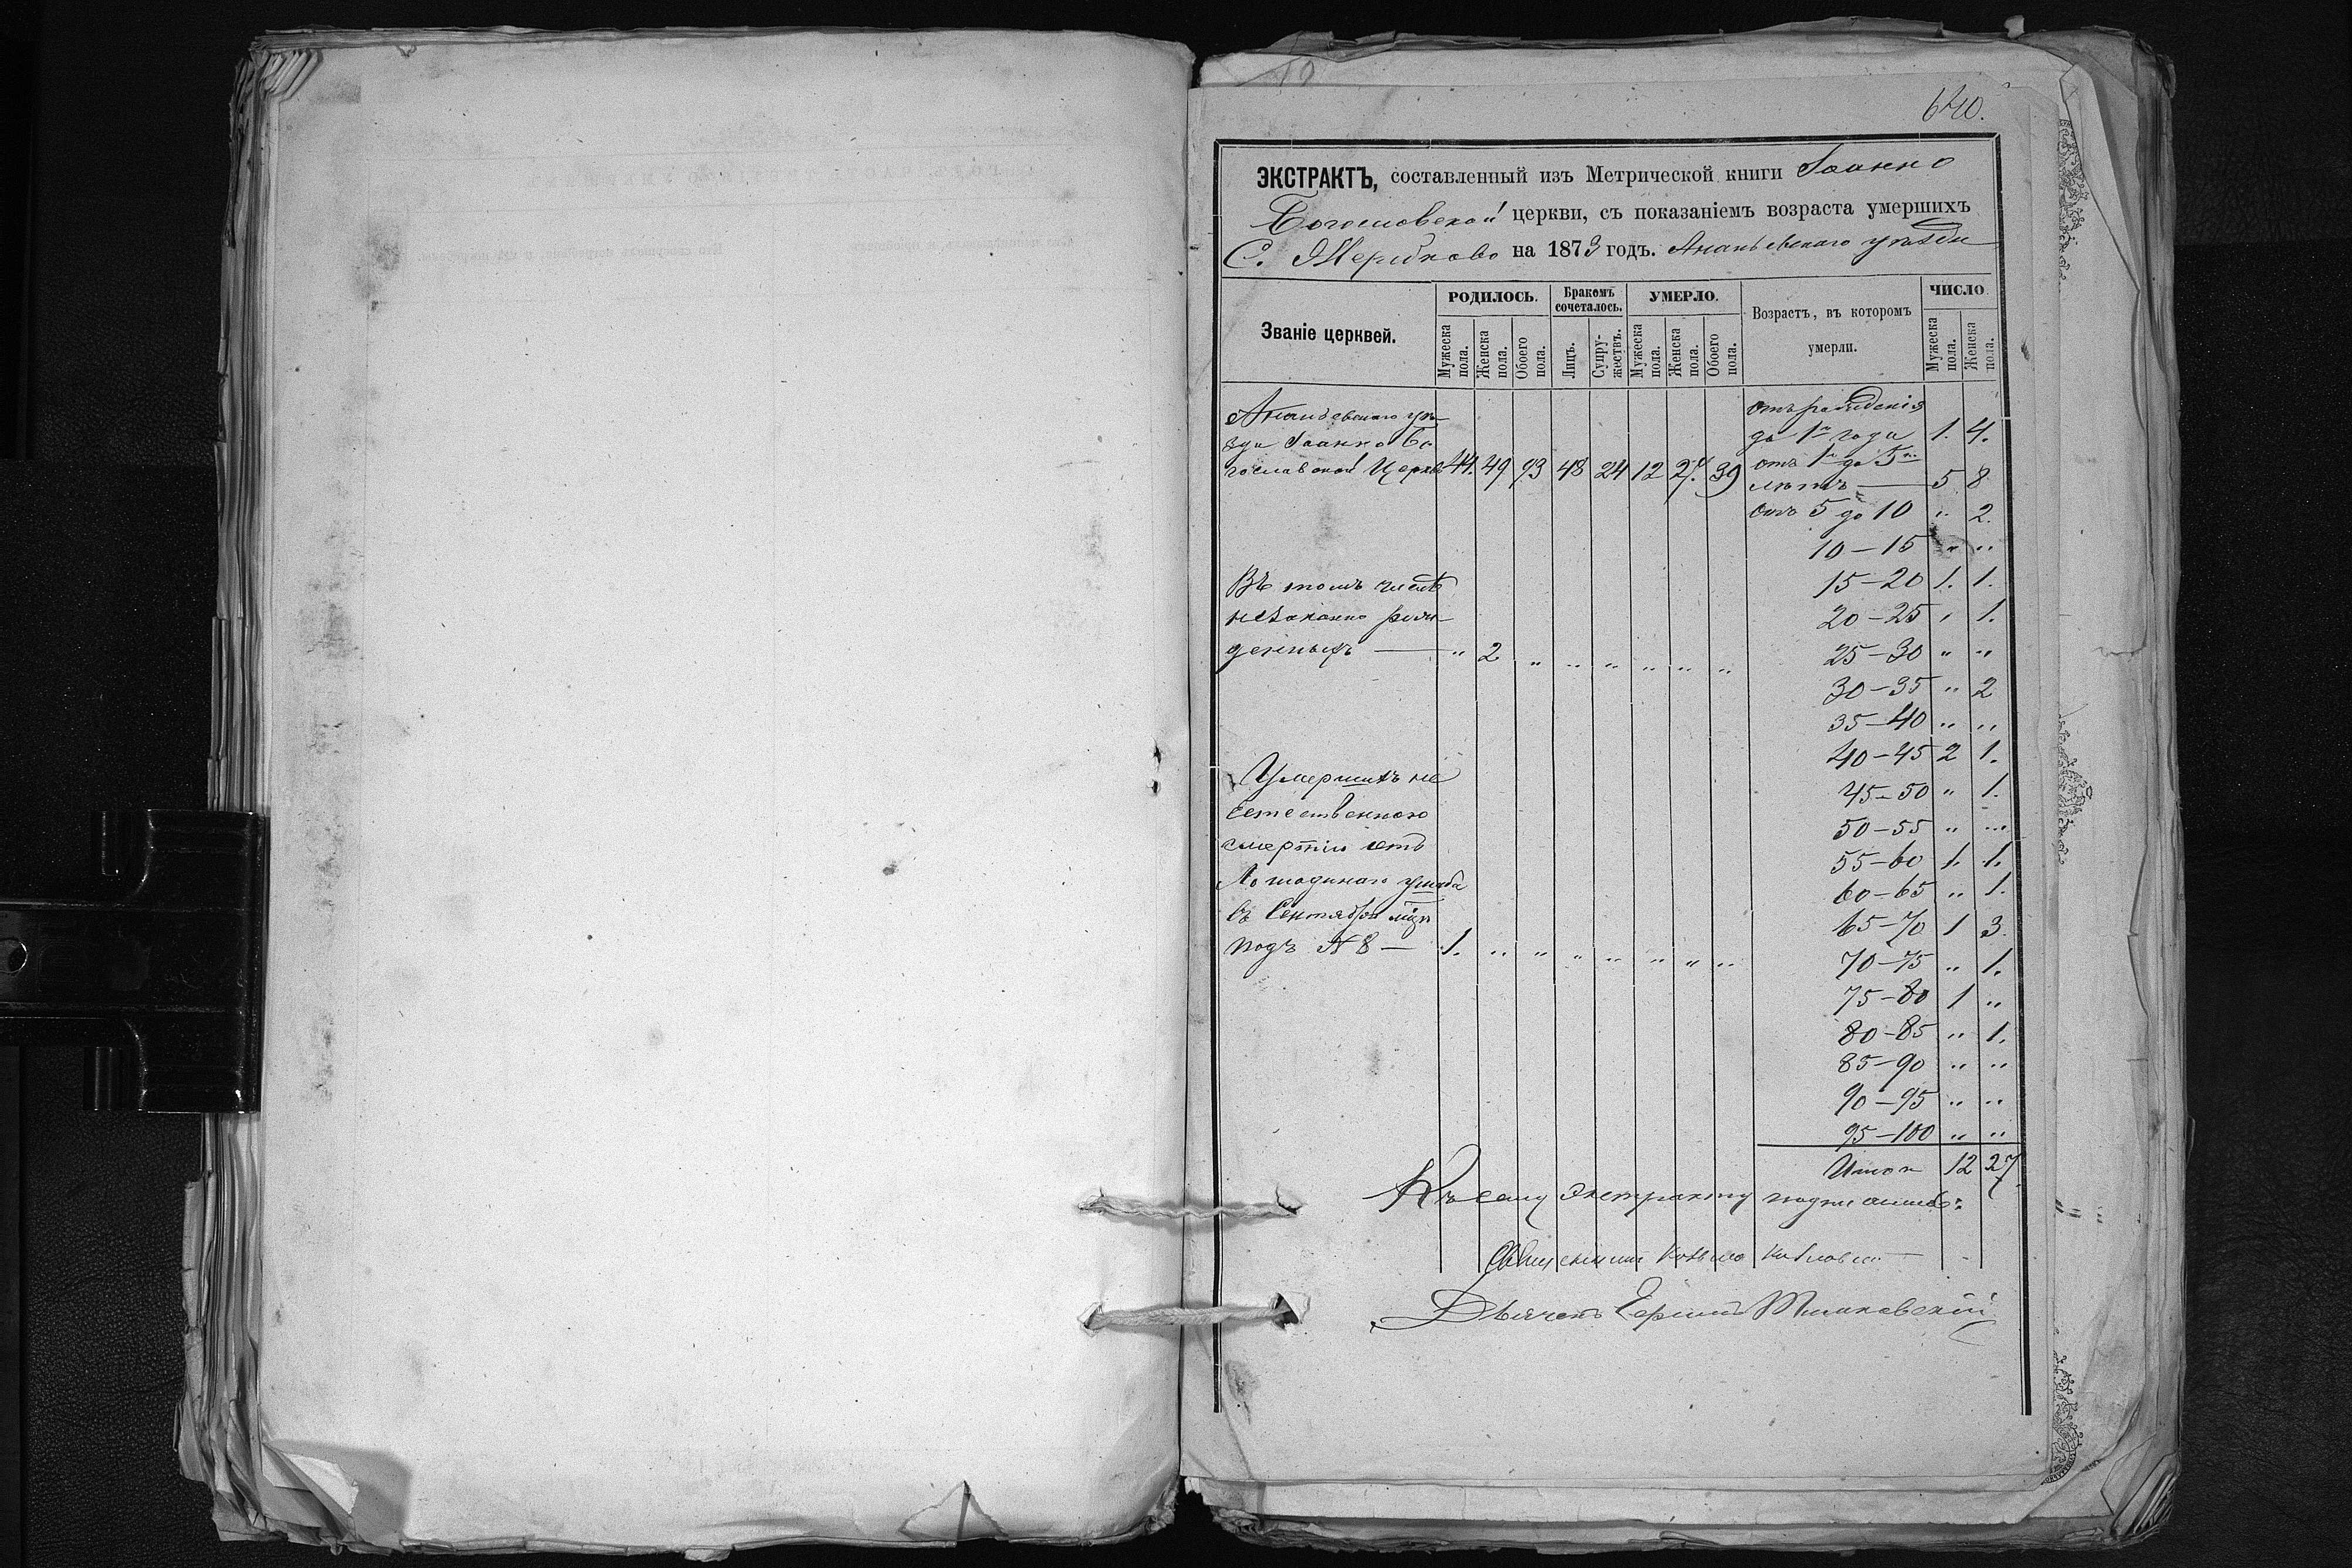 640.
ЭКСТРАКТЪ, составленный изъ Метрической книги Іоанно
Богословской церкви, съ показаніемъ возраста умершихъ
С. на 1873 годъ. Ананьевскаго уѣзда
Званіе церквей.
РОДИЛОСЬ.
Бракомъ сочеталось.
УМЕРЛО.
Возрастъ, въ которомъ умерли.
ЧИСЛО
Мужеска пола.
Женска пола.
Обоего пола.
Лицъ.
Супружествъ.
Мужеска пола.
Женска пола.
Обоего пола.
Мужеска пола.
Женска пола.
Ананьевскаго уѣ-
зда Іоанно Бо
гословской Церкви 44. 49 93 48 24 12 27. 39
отъ рожденія
до 1го года 1. 4.
отъ 1 до 5
лѣтъ — 5 8
отъ 5 до 10 „ 2.
10–15 „ „
15–20 1. 1.
20–25 „ 1.
25–30 „ „
30–35 „ 2
35–40 „ „
40–45 2 1.
45–50 „ 1.
50–55 „ „
55–60 1. 1.
60–65 „ 1.
65–70 1 3.
70–75 „ 1.
75–80 1 „
80–85 „ 1.
85–90 „ „
90–95 „ „
95–100 „ „
Итого 12 27
Въ томъ числѣ
незаконно рож
денныхъ — „ 2 „ „ „ „ „ „
Умершихъ не
естественною
смертію отъ
Лошадинаго ушиба
въ Сентябрѣ мцѣ
подъ № 8 — 1. „ „ „ „ „ „ „
Къ сему экстракту подписались:
Священникъ Козьма
Дьячекъ